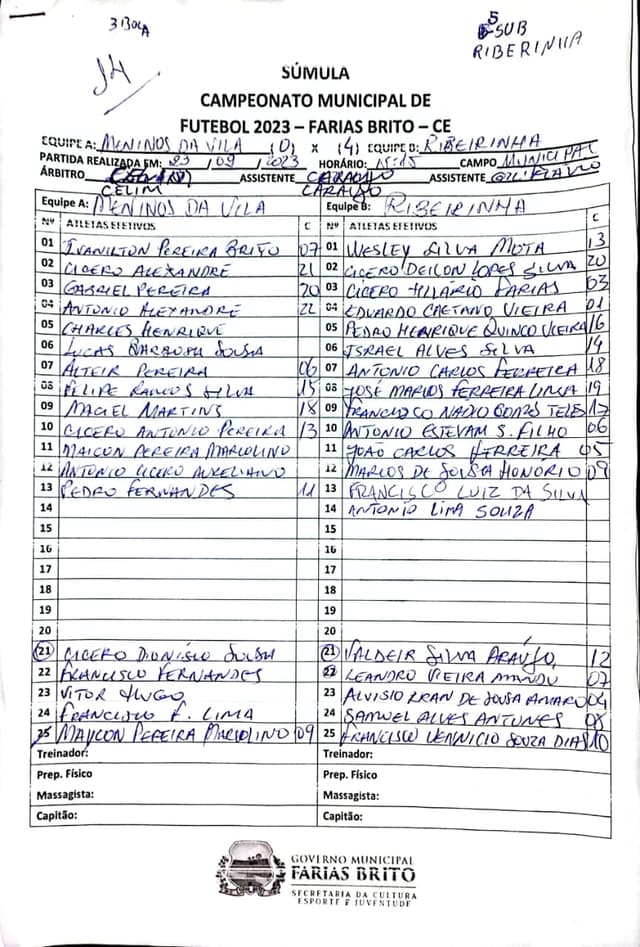 3 BOLA
5
SUB
RIBERINHA
14
SÚMULA
CAMPEONATO MUNICIPAL DE
FUTEBOL 2023 – FARIAS BRITO – CE
EQUIPE A: MENINOS DA VILA (0) x (4) EQUIPE B: RIBEIRINHA
PARTIDA REALIZADA EM: 23 / 09 / 2023 HORÁRIO: 15:15 CAMPO MUNICIPAL
ÁRBITRO ASSISTENTE CARAUJO ASSISTENTE
CELIM CARAUJO
Equipe A: MENINOS DA VILA Equipe B: RIBEIRINHA
Nº ATLETAS EFETIVOS C Nº ATLETAS EFETIVOS C
01 IVANILTON PEREIRA BRITO 07 01 WESLEY SILVA MOTA 13
02 CICERO ALEXANDRE 21 02 CICERO DEILON LOPES SILVA 20
03 GABRIEL PEREIRA 20 03 CÍCERO HILLÁRIO FARIAS 03
04 ANTONIO ALEXANDRE 22 04 EDUARDO CAETANO VIEIRA 01
05 CHARLES HENRIQUE 05 PEDRO HENRIQUE QUINCO VIEIRA 16
06 LUCAS BARBOSA SOUSA 06 ISRAEL ALVES SILVA 14
07 ALTEIR PEREIRA 06 07 ANTONIO CARLOS FERREIRA 18
08 FILIPE RAMOS SILVA 15 08 JOSÉ MARIOS FERREIRA LIMA 19
09 MACIEL MARTINS 18 09 FRANCISCO NADIO GOMES TELES 17
10 CICERO ANTONIO PEREIRA 13 10 ANTONIO ESTEVAM S. FILHO 06
11 MAICON PEREIRA MARCOLINO 11 JOÃO CARLOS FERREIRA 05
12 ANTONIO CICERO AURELIANO 12 MARLOS DE SOUSA HONORIO 09
13 PEDRO FERNANDES 11 13 FRANCISCO LUIZ DA SILVA
14 14 ANTONIO LIMA SOUZA
15 15
16 16
17 17
18 18
19 19
20 20
21 CICERO DIONISIO SOUSA 21 VALDEIR SILVA ARAÚJO 12
22 FRANCISCO FERNANDES 22 LEANDRO VIEIRA 07
23 VITOR HUGO 23 ALVISIO RRAN DE SOUSA AMARO 04
24 FRANCISCO F. LIMA 24 SAMUEL ALVES ANTUNES 08
25 MAYCON PEREIRA MARCOLINO 09 25 FRANCISCO VENNICIO SOUZA DIAS 10
Treinador: Treinador:
Prep. Físico Prep. Físico
Massagista: Massagista:
Capitão: Capitão:
GOVERNO MUNICIPAL
FARIAS BRITO
SECRETARIA DA CULTURA
ESPORTE E JUVENTUDE